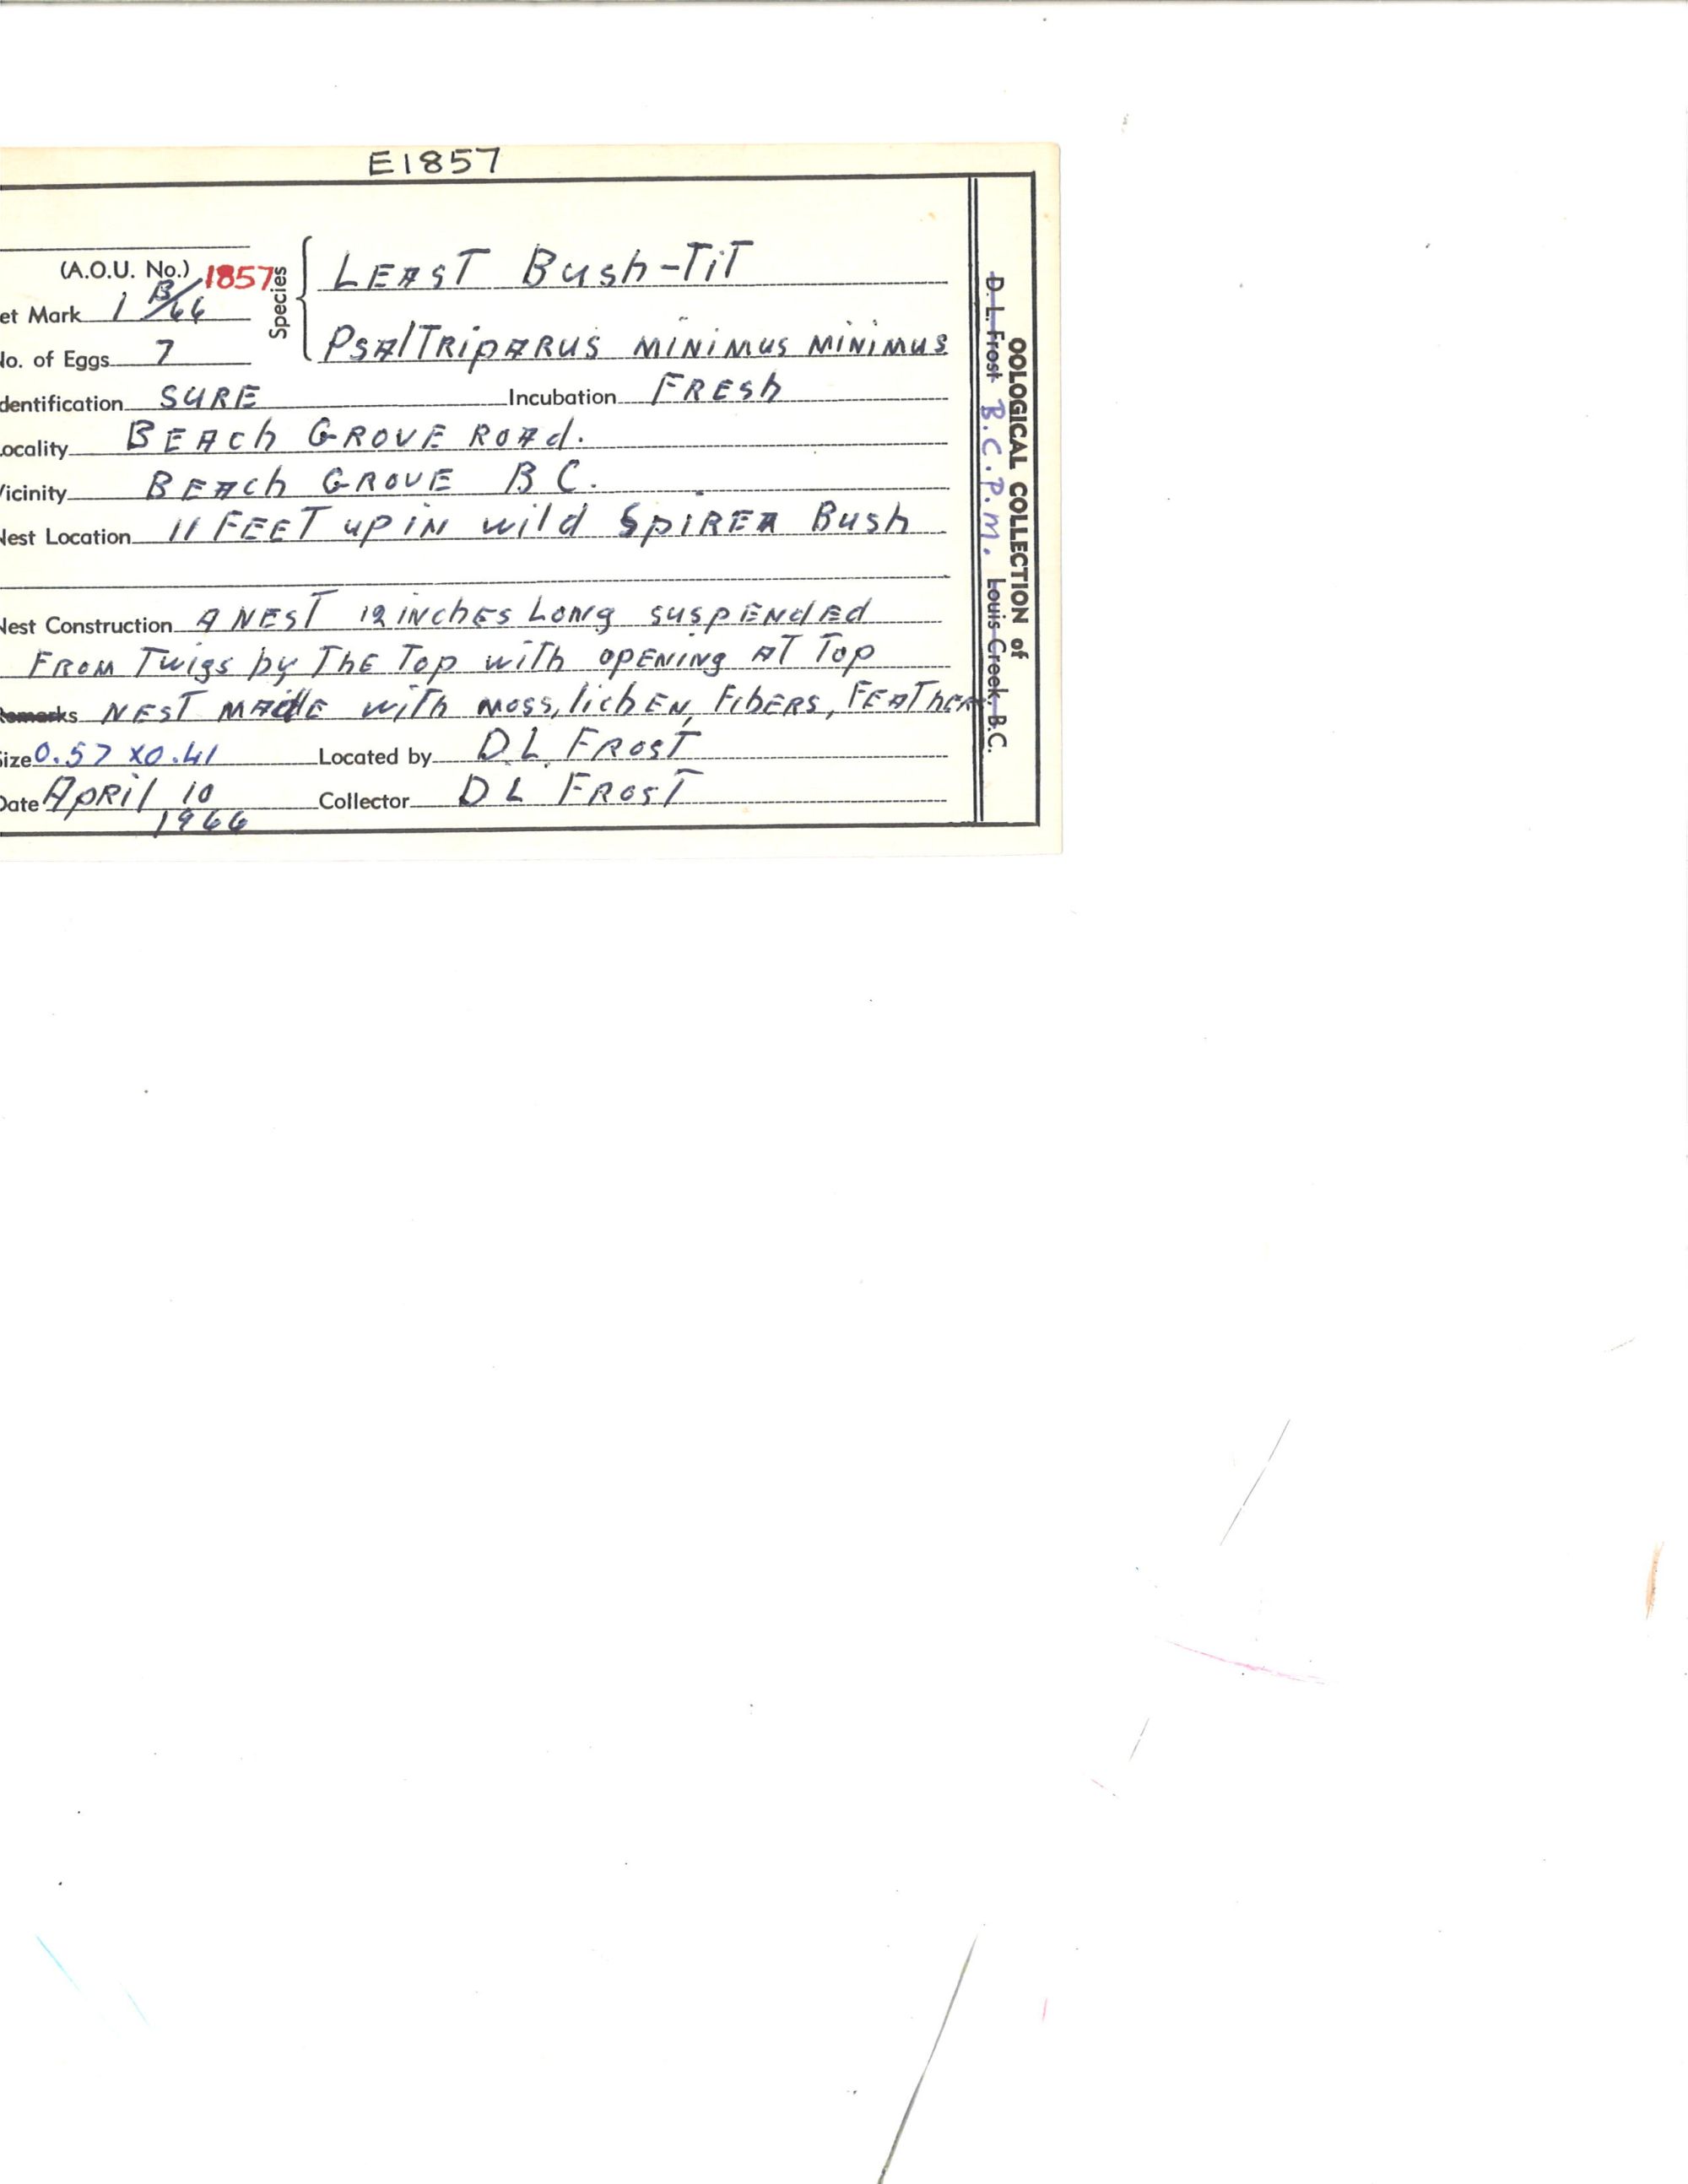 E1857
(A.O.U. No.) 1857
Species
LEAST Bush-TiT
et Mark 1 B/66
PSAlTRipARUS MiNiMUS MiNiMUS
No. of Eggs 7
dentification SURE Incubation FRESh
ocality BEACh GROVE ROAd.
Vicinity BEACh GROVE B C.
Nest Location 11 FEET up iN wild SpiREA Bush
Nest Construction A NEST 12 iNChES LONg SUSpENdEd
FROM Twigs by ThE Top with OPENiNg AT Top
Remarks NEST MAdE with moss, lichEN, FibERS, FEAThER
Size 0.57 x0.41 Located by D.L. FROST
Date April 10 1966 Collector D L FROST
OOLOGICAL COLLECTION of
D. L. Frost B.C.P.M. Louis Creek, B.C.